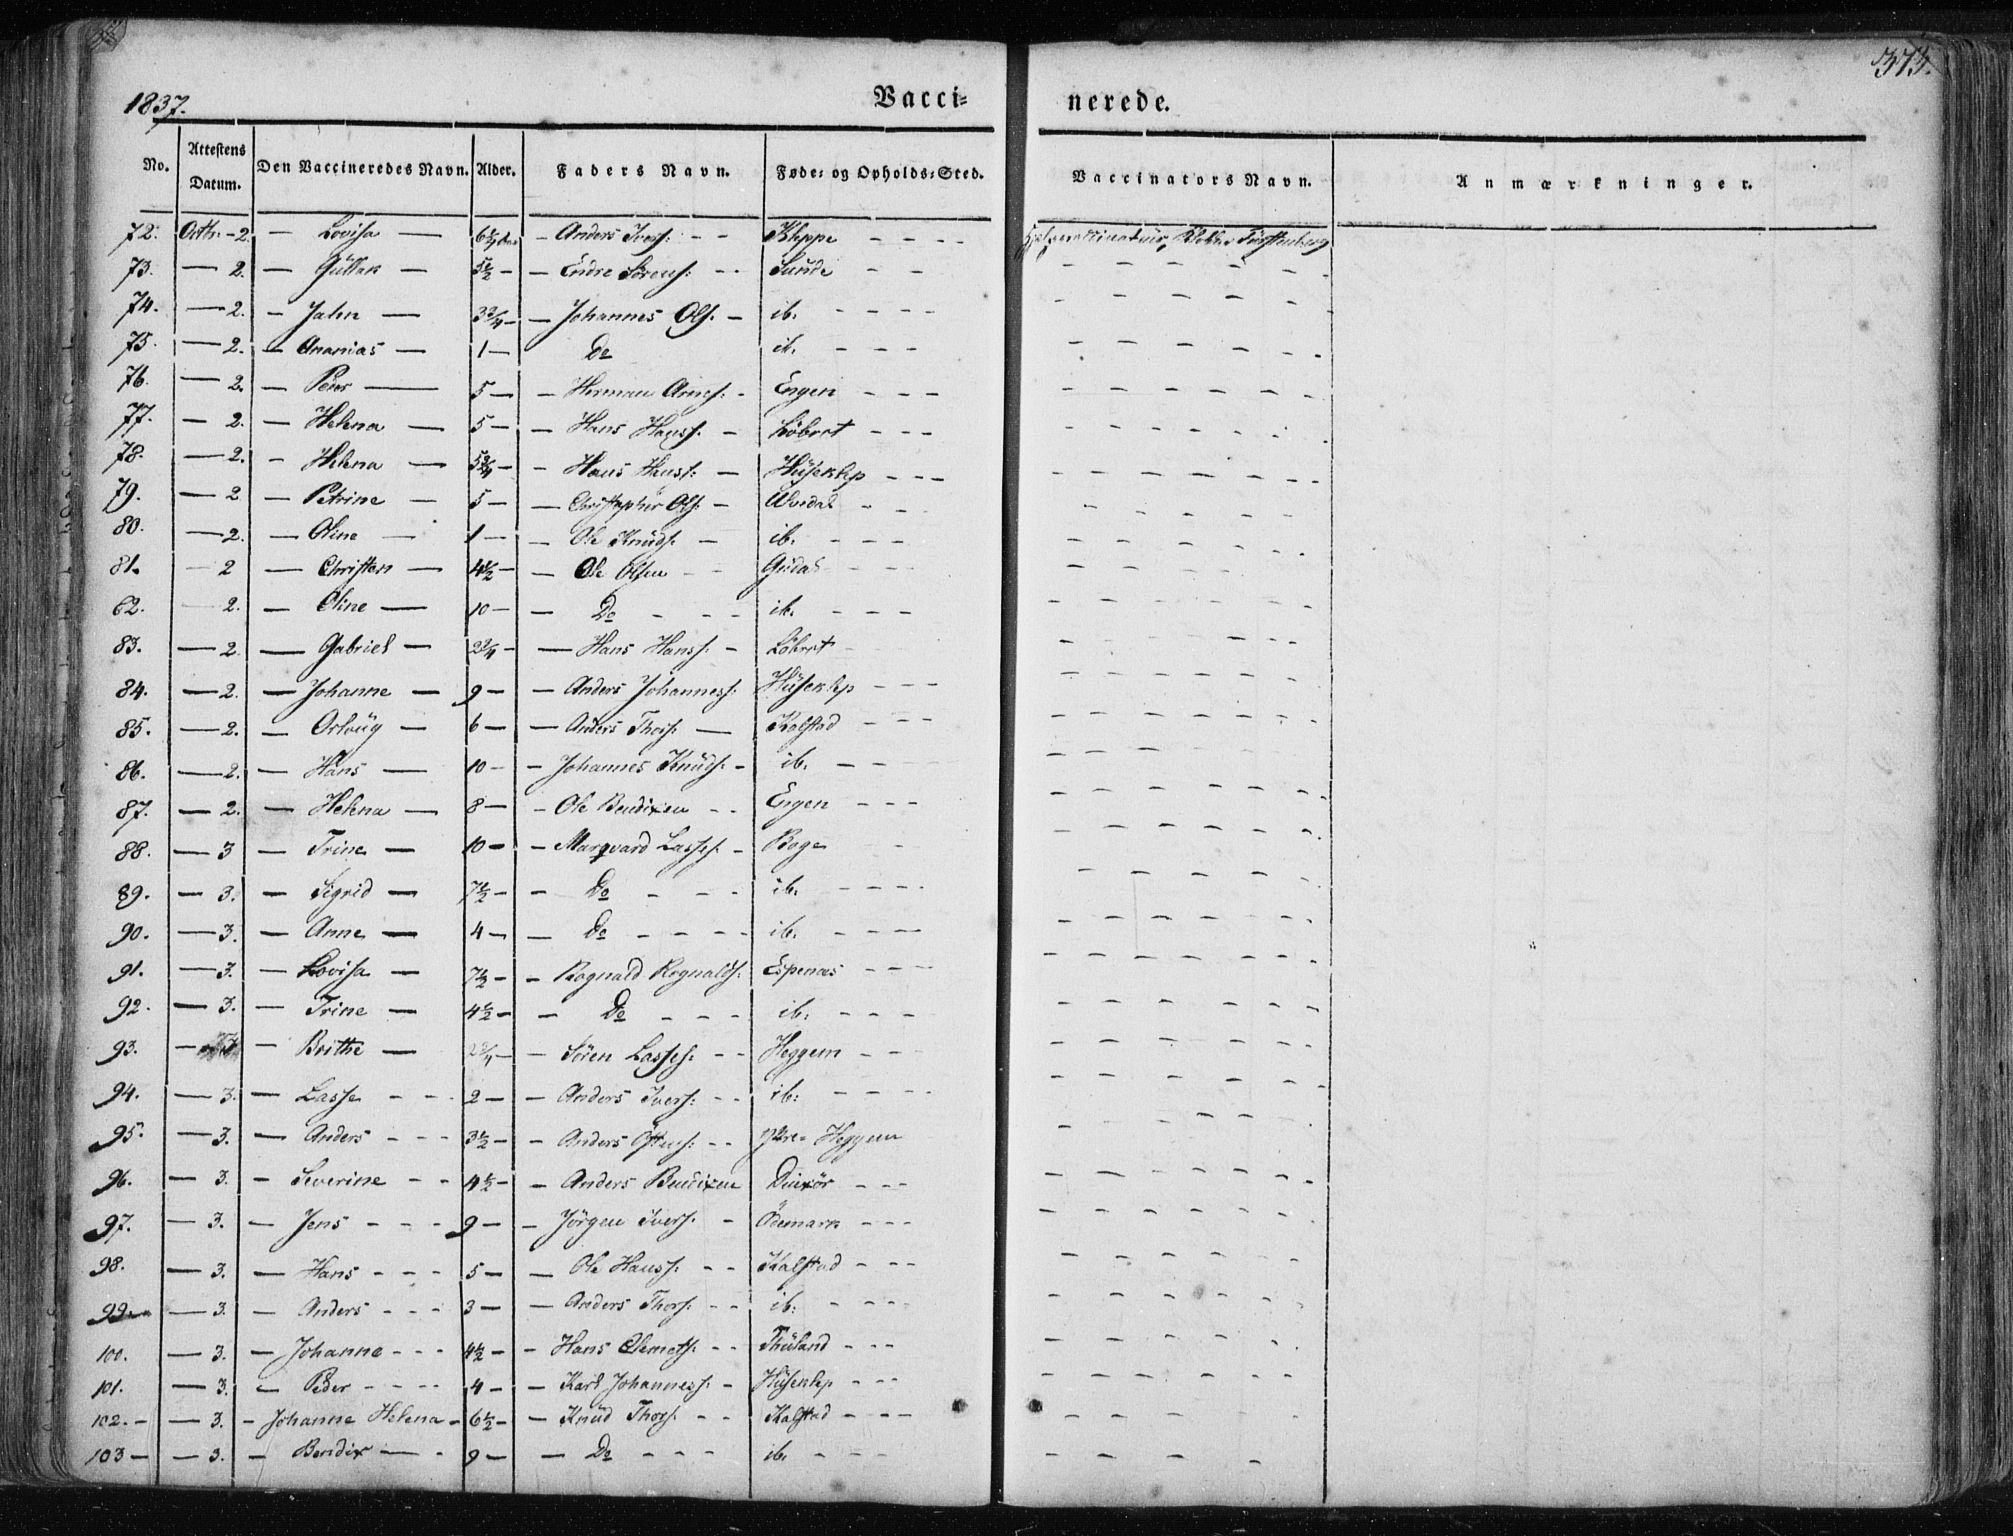 373.
1837.
Vacci- nerede.
No. Attestens Datum. Den Vaccineredes Navn. Alder. Faders Navn. Føde- og Opholds-Sted. Vaccinators Navn. Anmærkninger.
72. Octbr. - 2. - Lovisa - Anders Ivers: - - Kleppe - - - -
73. — 2. - Güllak 5½ - - Endre Sörens: - - Sunde - -
74. — 2. - Jahn — 3¾ - - Johannes Ols: - ib. - - - -
75. — 2. - Ananias — 1 — Do ib. - - -
76. — 2. - Peder — 5 — - Herman Arnes: - Engen - - -
77. - 2. - Helena — 5 - - Hans Hanss: - Löbrot - - -
78. — 2. - Helena — 5¾ - - Hans Hanss: - Hüseklep - - -
79. — 2 - Petrine - 5 - - Christopher Ols: -
80. — 2. - Oline - 1 - - Ole Knüds: - ib. - - -
81. - 2 - Christen — 4½ - - Ole Olsen - - - - -
62. - 2. - Oline — 10 - - Do - - - ib. - - -
83. — 2 - Gabriel - 2¾ - - Hans Hanss: - Löbrot -
84. — 2. - Johanne - 9 - - Anders Johanness: Hüseklep - - -
85. — 2. - - 6 - - Anders Thors: — Kalstad - - -
86. — 2. - Hans — 10 - - Johannes Knüds: - ib. - - -
87. — 2. - Helena — 8 — - Ole Bendixen - - Engen - - -
88. — 3 - Trine - 10 - - Marqvard Lasses: - Boge -
89. — 3. - Sigrid - 7½ - - Do - - ib. - - - -
90. — 3. - Anne - 4 - - Do - - - - ib. - - - -
91. — 3. - Lovisa - 7½ - - Rognald Rognalds: Espenæs - - -
92. — 3. - Trine - 4½ - - Do - - - ib. - - -
93. - 3 - Brithe - - Sören Lasses: - - Heggem - - -
94. — 3. - Lasse - - - 2 - - Anders Ivers: - - ib: - - - -
95. — 3. - Anders - - - 3½ - - Anders - - Heggem
96. - 3. - Severine - - 4½ - - Anders Bendixen - - -
97. - 3. - Jens - - - 9 - - Jörgen Ivers: - Ödemark - - -
98. — 3. - Hans - - - 5 - - Ole Hanss: - - Kalstad - - -
99. — 3. - Anders - - - 3 — - Anders Thors: - - ib: - - - -
100. — 3. - Johanne - - - 4½ - - Hans Clemets: - - Thüland - - -
101. — 3. - Peder - - - - 4 - - Karl Johanness: - Hüseklep - - -
102. - — 3. - Johanne Helena - 6½ - - Knüd Thors: - - Kalstad - - - -
103 - — 3. - Bendix — - 9 — - Do - - - ib. - - -